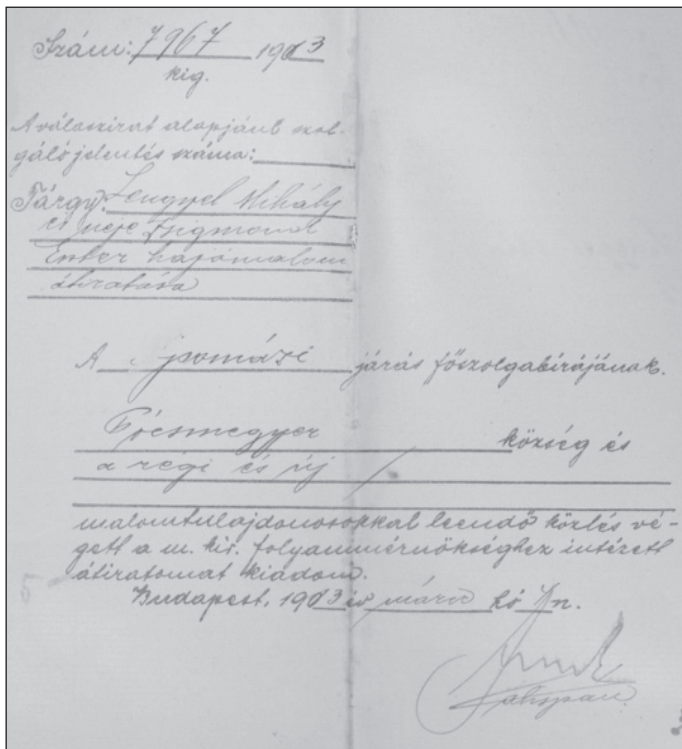 Szám: 7967 1903
kig.
A válaszirat alapjául szol-
gáló jelentés száma:
Tárgy: Lengyel Mihály
és neje Zsigmond
Eszter hajómalom
átiratása
A pomázi járás főszolgabírájának.
Pócsmegyer község és
a régi és új
malomtulajdonosokkal leendő közlés vé-
gett a m. kir. folyammérnökséghez intézett
átiratomat kiadom.
Budapest, 1903 év márcz hó n.
alispán.